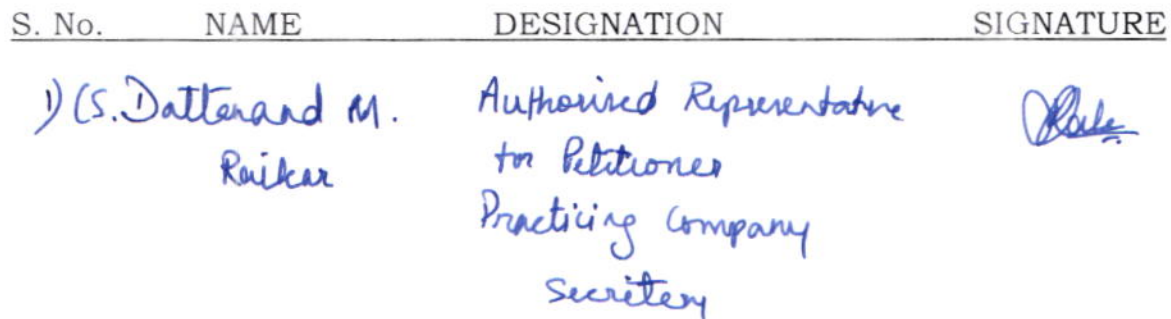 S. No. NAME DESIGNATION SIGNATURE
1) CS. Dattanand M. Authorised Representative
Raikar for Petitioner
Practicing Company
Secretary